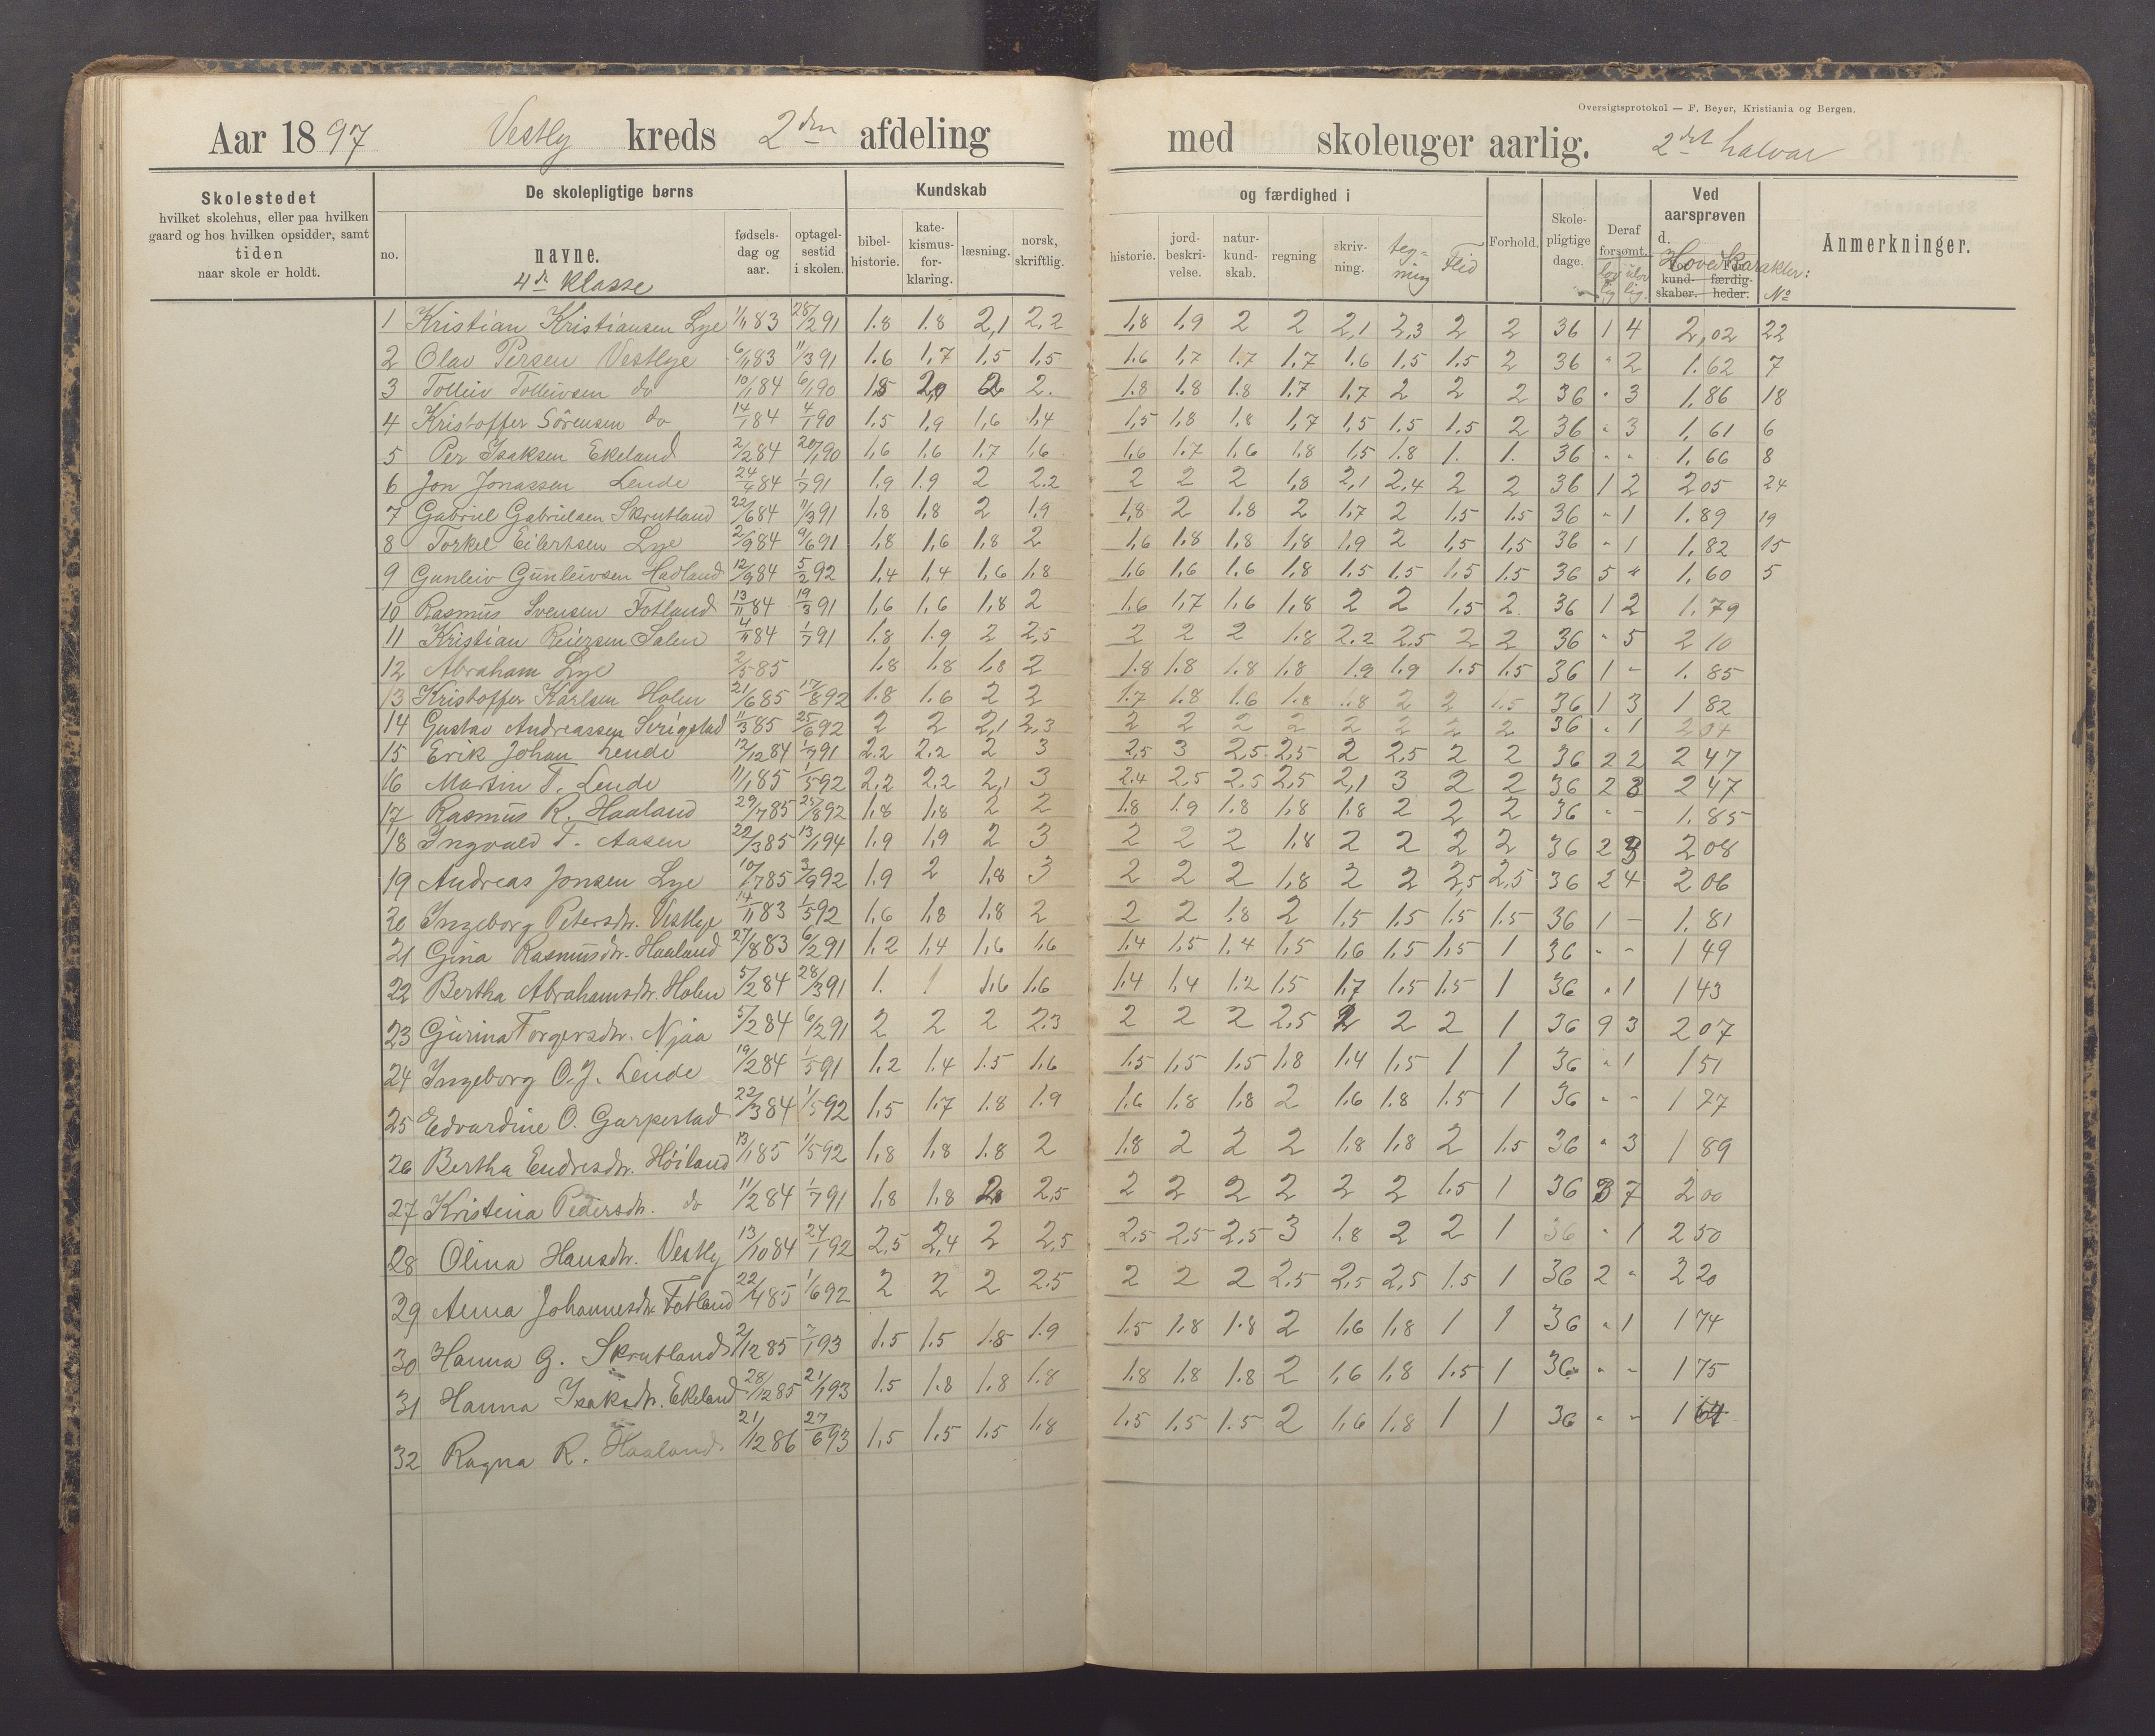 Oversigtsprotokol — F. Beyer, Kristiania og Bergen.
Aar 1897 Vestly kreds 2den afdeling med skoleuger aarlig. 2det halvaar
Skolestedet
hvilket skolehus, eller paa hvilken
gaard og hos hvilken opsidder, samt
tiden
naar skole er holdt.
De skolepligtige børns
no.
navne.
4de Klasse
fødsels-
dag og
aar.
optagel-
sestid
i skolen.
Kundskab
bibel-
historie.
kate-
kismus-
for-
klaring.
læsning.
norsk,
skriftlig.
og færdighed i
historie.
jord-
beskri-
velse.
natur-
kund-
skab.
regning
skriv-
ning.
teg-
ning
Flid
Forhold.
Skole-
pligtige
dage.
Deraf
forsømt.
lov
lig
ulov
lig.
Ved
aarsprøven
d.
Hovedkarakter:
kund-
skaber.
færdig-
heder.
No
Anmerkninger.
1 Kristian Kristiansen Lye 1/1 83 28/2 91 1.8 1.8 2,1 2,2 1,8 1,9 2 2 2,1 2,3 2 2 36 1 4 2,02 22
2 Olav Persen Vestlye 6/1 83 11/3 91 1.6 1,7 1,5 1,5 1.6 1,7 1.7 1,7 1.6 1,5 1.5 2 36 " 2 1.62 7
3 Tolleiv Tolleivsen do 10/1 84 6/1 90 1,5 2,0 2 2. 1.8 1.8 1.8 1.7 1,7 2 2 2 36 " 3 1,86 18
4 Kristoffer Sörensen do 14/1 84 4/1 90 1.5 1,9 1,6 1,4 1,5 1,8 1,8 1,7 1,5 1.5 1,5 2 36 " 3 1,61 6
5 Per Isaksen Ekeland 2/2 84 20/1 90 1,6 1.6 1.7 1,6 1,6 1.7 1,6 1.8 1,5 1.8 1. 1. 36 " " 1,66 8
6 Jon Jonassen Lende 24/4 84 1/7 91 1,9 1.9 2 2.2 2 2 2 1,8 2,1 2,4 2 2 36 1 2 2 05 24
7 Gabriel Gabrielsen Skrutland 22/6 84 11/3 91 1,8 1,8 2 1,9 1,8 2 1.8 2 1.7 2 1,5 1.5 36 " 1 1.89 19
8 Torkel Eilertsen Lye 2/9 84 9/6 91 1,8 1,6 1,8 2 1,6 1.8 1,8 1,8 1,9 2 1,5 1,5 36 " 1 1,82 15
9 Gunleiv Gunleivsen Hadland 12/9 84 5/2 92 1,4 1,4 1,6 1,8 1,6 1,6 1.6 1,8 1.5 1.5 1,5 1.5 36 5 " 1,60 5
10 Rasmus Svensen Fotland 13/11 84 19/3 91 1,6 1,6 1,8 2 1.6 1,7 1,6 1,8 2 2 1,5 2 36 1 2 1,79
11 Kristian Reiersen Salen 4/11 84 1/7 91 1.8 1.9 2 2,5 2 2 2 1.8 2.2 2.5 2 2 36 " 5 2 10
12 Abraham Lye 2/5 85 1.8 1,8 1,8 2 1.8 1.8 1.8 1,8 1.9 1,9 1.5 1.5 36 1 - 1. 85
13 Kristoffer Karlsen Holen 21/6 85 17/8 92 1.8 1.6 2 2 1.7 1.8 1.6 1.8 1.8 2 2 1.5 36 1 3 1 82
14 Gustav Andreassen Serigstad 11/3 85 25/6 92 2 2 2,1 2,3 2 2 2 2 2 2 2 2 36 " 1 2 04
15 Erik Johan Lende 12/12 84 1/7 91 2.2 2.2 2 3 2,5 3 2,5 2,5 2 2,5 2 2 36 2 2 2 47
16 Martin T. Lende 11/1 85 1/5 92 2,2 2,2 2,1 3 2.4 2,5 2,5 2,5 2,1 3 2 2 36 2 3 2 47
17 Rasmus R. Haaland 29/7 85 25/8 92 1,8 1,8 2 2 1.8 1.9 1.8 1,8 1.8 2 2 2 36 " - 1.85
18 Ingvald T. Aasen 22/3 85 13/1 94 1.9 1,9 2 3 2 2 2 1,8 2 2 2 2 36 2 3 2 08
19 Andreas Jonsen Lye 10/7 85 3/9 92 1.9 2 1,8 3 2 2 2 1,8 2 2 2,5 2,5 36 2 4 2 06
20 Ingeborg Petersdtr. Vestlye 14/11 83 1/5 92 1,6 1,8 1.8 2 2 2 1.8 2 1,5 1.5 1.5 1.5 36 1 - 1. 81
21 Gina Rasmusdtr. Haaland 27/8 83 6/2 91 1,2 1,4 1,6 1,6 1.4 1,5 1.4 1,5 1,6 1,5 1,5 1 36 " - 1 49
22 Bertha Abrahamsdtr. Holen 5/2 84 28/3 91 1. 1 1,6 1,6 1,4 1,4 1.2 1,5 1,7 1,5 1.5 1 36 " 1 1 43
23 Gurina Torgersdtr. Njaa 5/2 84 6/2 91 2 2 2 2.3 2 2 2 2.5 2 2 2 1 36 9 3 2 07
24 Ingeborg O.J. Lende 19/2 84 1/5 91 1,2 1.4 1.5 1,6 1.5 1,5 1.5 1,8 1.4 1,5 1 1 36 " 1 1 51
25 Edvardine O. Garpestad 22/3 84 1/5 92 1,5 1,7 1.8 1.9 1.6 1,8 1,8 2 1.6 1.8 1.5 1 36 " - 1 77
26 Bertha Endresdtr. Höiland 13/1 85 1/5 92 1,8 1,8 1.8 2 1.8 2 2 2 1,8 1,8 2 1.5 36 " 3 1 89
27 Kristina Pedersdtr. do 11/2 84 1/7 91 1,8 1,8 2 2,5 2 2 2 2 2 2 1.5 1 36 3 7 2 00
28 Olina Hansdtr. Vestly 13/10 84 24/1 92 2,5 2,4 2 2,5 2,5 2,5 2,5 3 1.8 2 2 1 36 " 1 2 50
29 Anna Johannesdtr. Fotland 22/4 85 1/6 92 2 2 2 2.5 2 2 2 2,5 2,5 2,5 1.5 1 36 2 " 2 20
30 Hanna G. Skrutland 2/12 85 7/1 93 1.5 1.5 1.8 1.9 1.5 1.8 1.8 2 1,6 1,8 1 1 36 " 1 1 74
31 Hanna Isaksdtr. Ekeland 28/12 85 21/1 93 1.5 1.8 1,8 1.8 1.8 1.8 1.8 2 1,6 1,8 1.5 1 36 " - 1 75
32 Ragna R. Haaland 21/12 86 27/6 93 1,5 1.5 1.5 1,8 1.5 1,5 1.5 2 1,6 1,8 1 1 36 " - 1 64